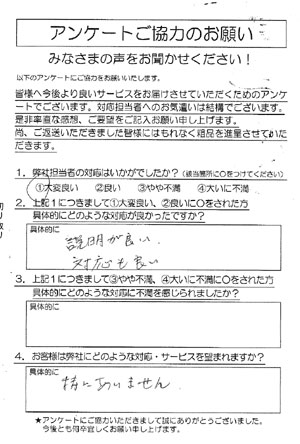 アンケートご協力のお願い
みなさまの声をお聞かせください！
以下のアンケートにご協力をお願いいたします。
皆様へ今後より良いサービスをお届けさせていただくためのアンケ
ートでございます。対応担当者へのお気遣いは結構でございます。
是非率直な感想、ご要望をご記入お願い申し上げます。
尚、ご返送いただきました皆様にはもれなく粗品を進呈させていた
だきます。
1．弊社担当者の対応はいかがでしたか？（該当箇所に○をつけてください）
①大変良い　②良い　③やや不満　④大いに不満
2．上記1につきまして①大変良い、②良いに○をされた方
具体的にどのような対応が良かったですか？
具体的に
説明が良い
対応も良い
3．上記1につきまして③やや不満、④大いに不満に○をされた方
具体的にどのような対応に不満を感じられましたか？
具体的に
4．お客様は弊社にどのような対応・サービスを望まれますか？
具体的に
特にありません
★アンケートにご協力いただきまして誠にありがとうございました。
今後とも何卒宜しくお願い申し上げます。
切り取り